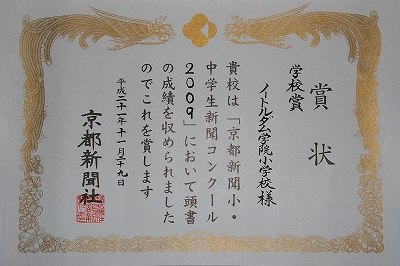 賞状
学校賞
ノートルダム学院小学校様
貴校は「京都新聞小・
中学生新聞コンクール
2009」において頭書
の成績を収められました
のでこれを賞します
平成二十一年十一月二十九日
京都新聞社